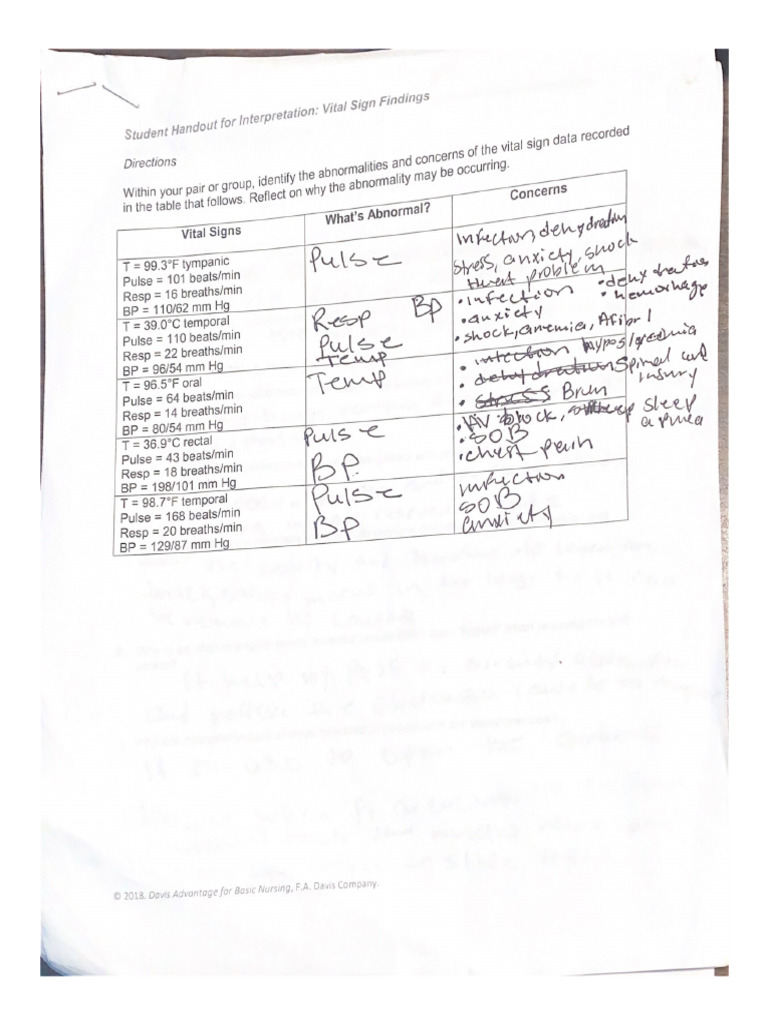 Student Handout for Interpretation: Vital Sign Findings
Directions
Within your pair or group, identify the abnormalities and concerns of the vital sign data recorded
in the table that follows. Reflect on why the abnormality may be occurring.
Vital Signs
What's Abnormal?
Concerns
T = 99.3°F tympanic
Pulse = 101 beats/min
Resp = 16 breaths/min
BP = 110/62 mm Hg
Pulse
Infection, dehydration
Stress, anxiety, shock
problem
T = 39.0°C temporal
Pulse = 110 beats/min
Resp = 22 breaths/min
BP = 96/54 mm Hg
Resp BP
Pulse
Temp
• Infection • dehydration
• anxiety • hemorrhage
• shock, anemia, Afib
T = 96.5°F oral
Pulse = 64 beats/min
Resp = 14 breaths/min
BP = 80/54 mm Hg
Temp
• infection
• dehydration Spinal
• stress Brain injury
T = 36.9°C rectal
Pulse = 43 beats/min
Resp = 18 breaths/min
BP = 198/101 mm Hg
Pulse
BP
• AV block, sleep
• SOB apnea
• chest pain
T = 98.7°F temporal
Pulse = 168 beats/min
Resp = 20 breaths/min
BP = 129/87 mm Hg
Pulse
BP
infection
SOB
anxiety
© 2018. Davis Advantage for Basic Nursing, F.A. Davis Company.